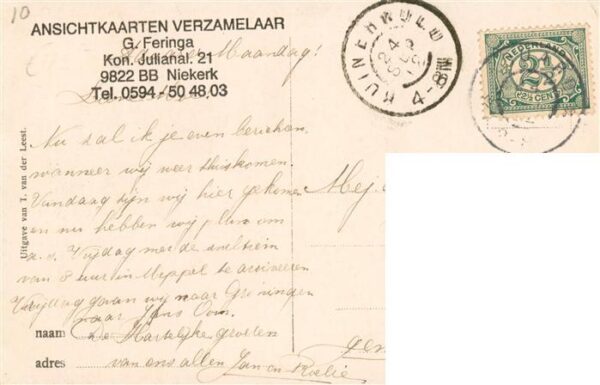 10
ANSICHTKAARTEN VERZAMELAAR
G. Feringa
Kon. Julianal. 21
9822 BB Niekerk
Tel. 0594 - 50 48 03
Maandag!
RUINERWOLD
24
4-8N
NEDERLAND
2½
CENT
Uitgave van T. van der Leest.
Nu zal ik je even berichten
wanneer wij weer thuiskomen.
Vandaag zijn wij hier gekomen
en nu hebben wij plan om
a.s. Vrijdag met de sneltrein
van 8 uur in Meppel te arriveeren
Vrijdag gaan wij naar Groningen
naar Jans Oom.
naam De Hartelijke groeten
adres van ons allen Jan en Roelie
Mej.